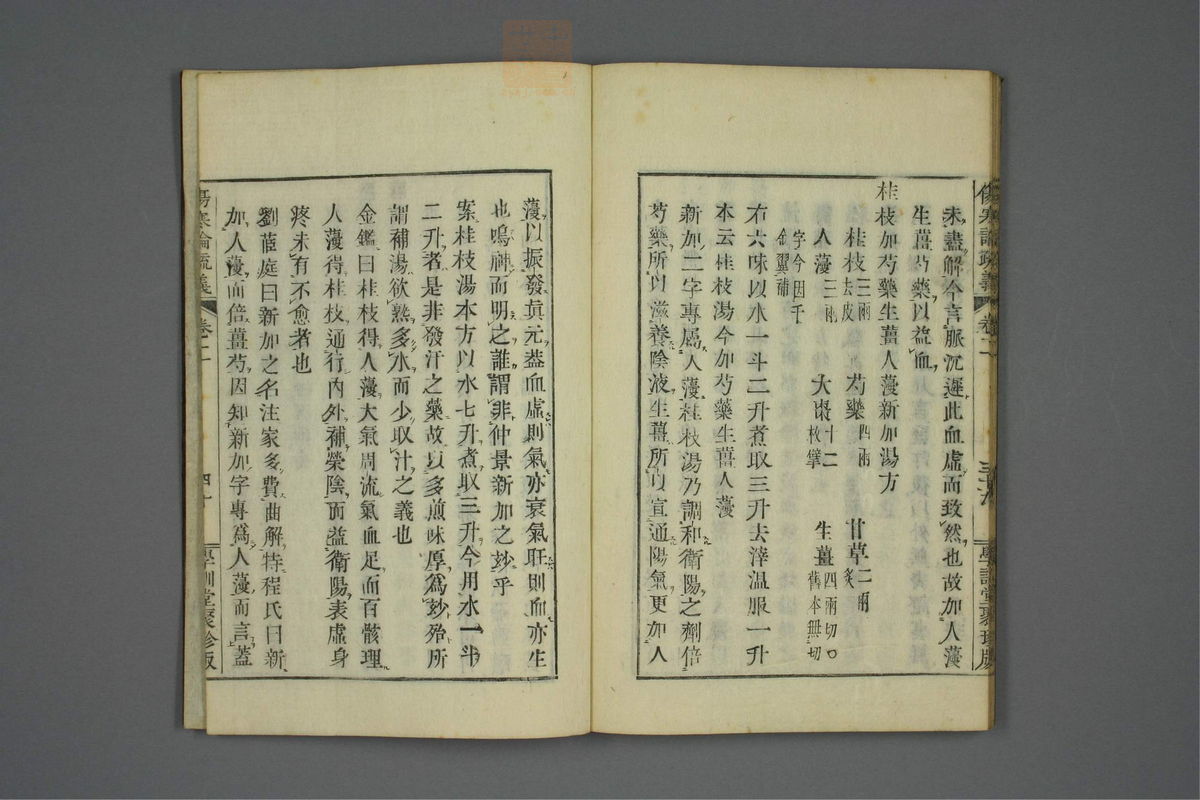 傷寒論疏義 卷二 三十九 學訓堂聚珍版
未盡解今言脈沉遲此血虛而致然也故加人薓
生薑芍藥以益血
桂枝加芍藥生薑人薓新加湯方
桂枝三兩去皮 芍藥四兩 甘草二兩炙
人薓三兩 大棗十二枚擘 生薑四兩切○舊本無切
字今因千金翼補
右六味以水一斗二升煮取三升去滓温服一升
本云桂枝湯今加芍藥生薑人薓
新加二字專屬人薓桂枝湯乃調和衛陽之劑倍
芍藥所以滋養陰液生薑所以宣通陽氣更加人
薓以振發真元葢血虛則氣亦衰氣旺則血亦生
也嗚神而明之誰謂非仲景新加之妙乎
案桂枝湯本方以水七升煮取三升今用水一斗
二升者是非發汗之藥故以多煎味厚爲妙殆所
謂補湯欲熟多水而少取汁之義也
金鑑曰桂枝得人薓大氣周流氣血足而百骸理
人薓得桂枝通行內外補榮陰而益衛陽表虛身
疼未有不愈者也
劉茝庭曰新加之名注家多費曲解特程氏曰新
加人薓而倍薑芍因知新加字專爲人薓而言蓋
傷寒論疏義 卷二 四十 學訓堂聚珍版